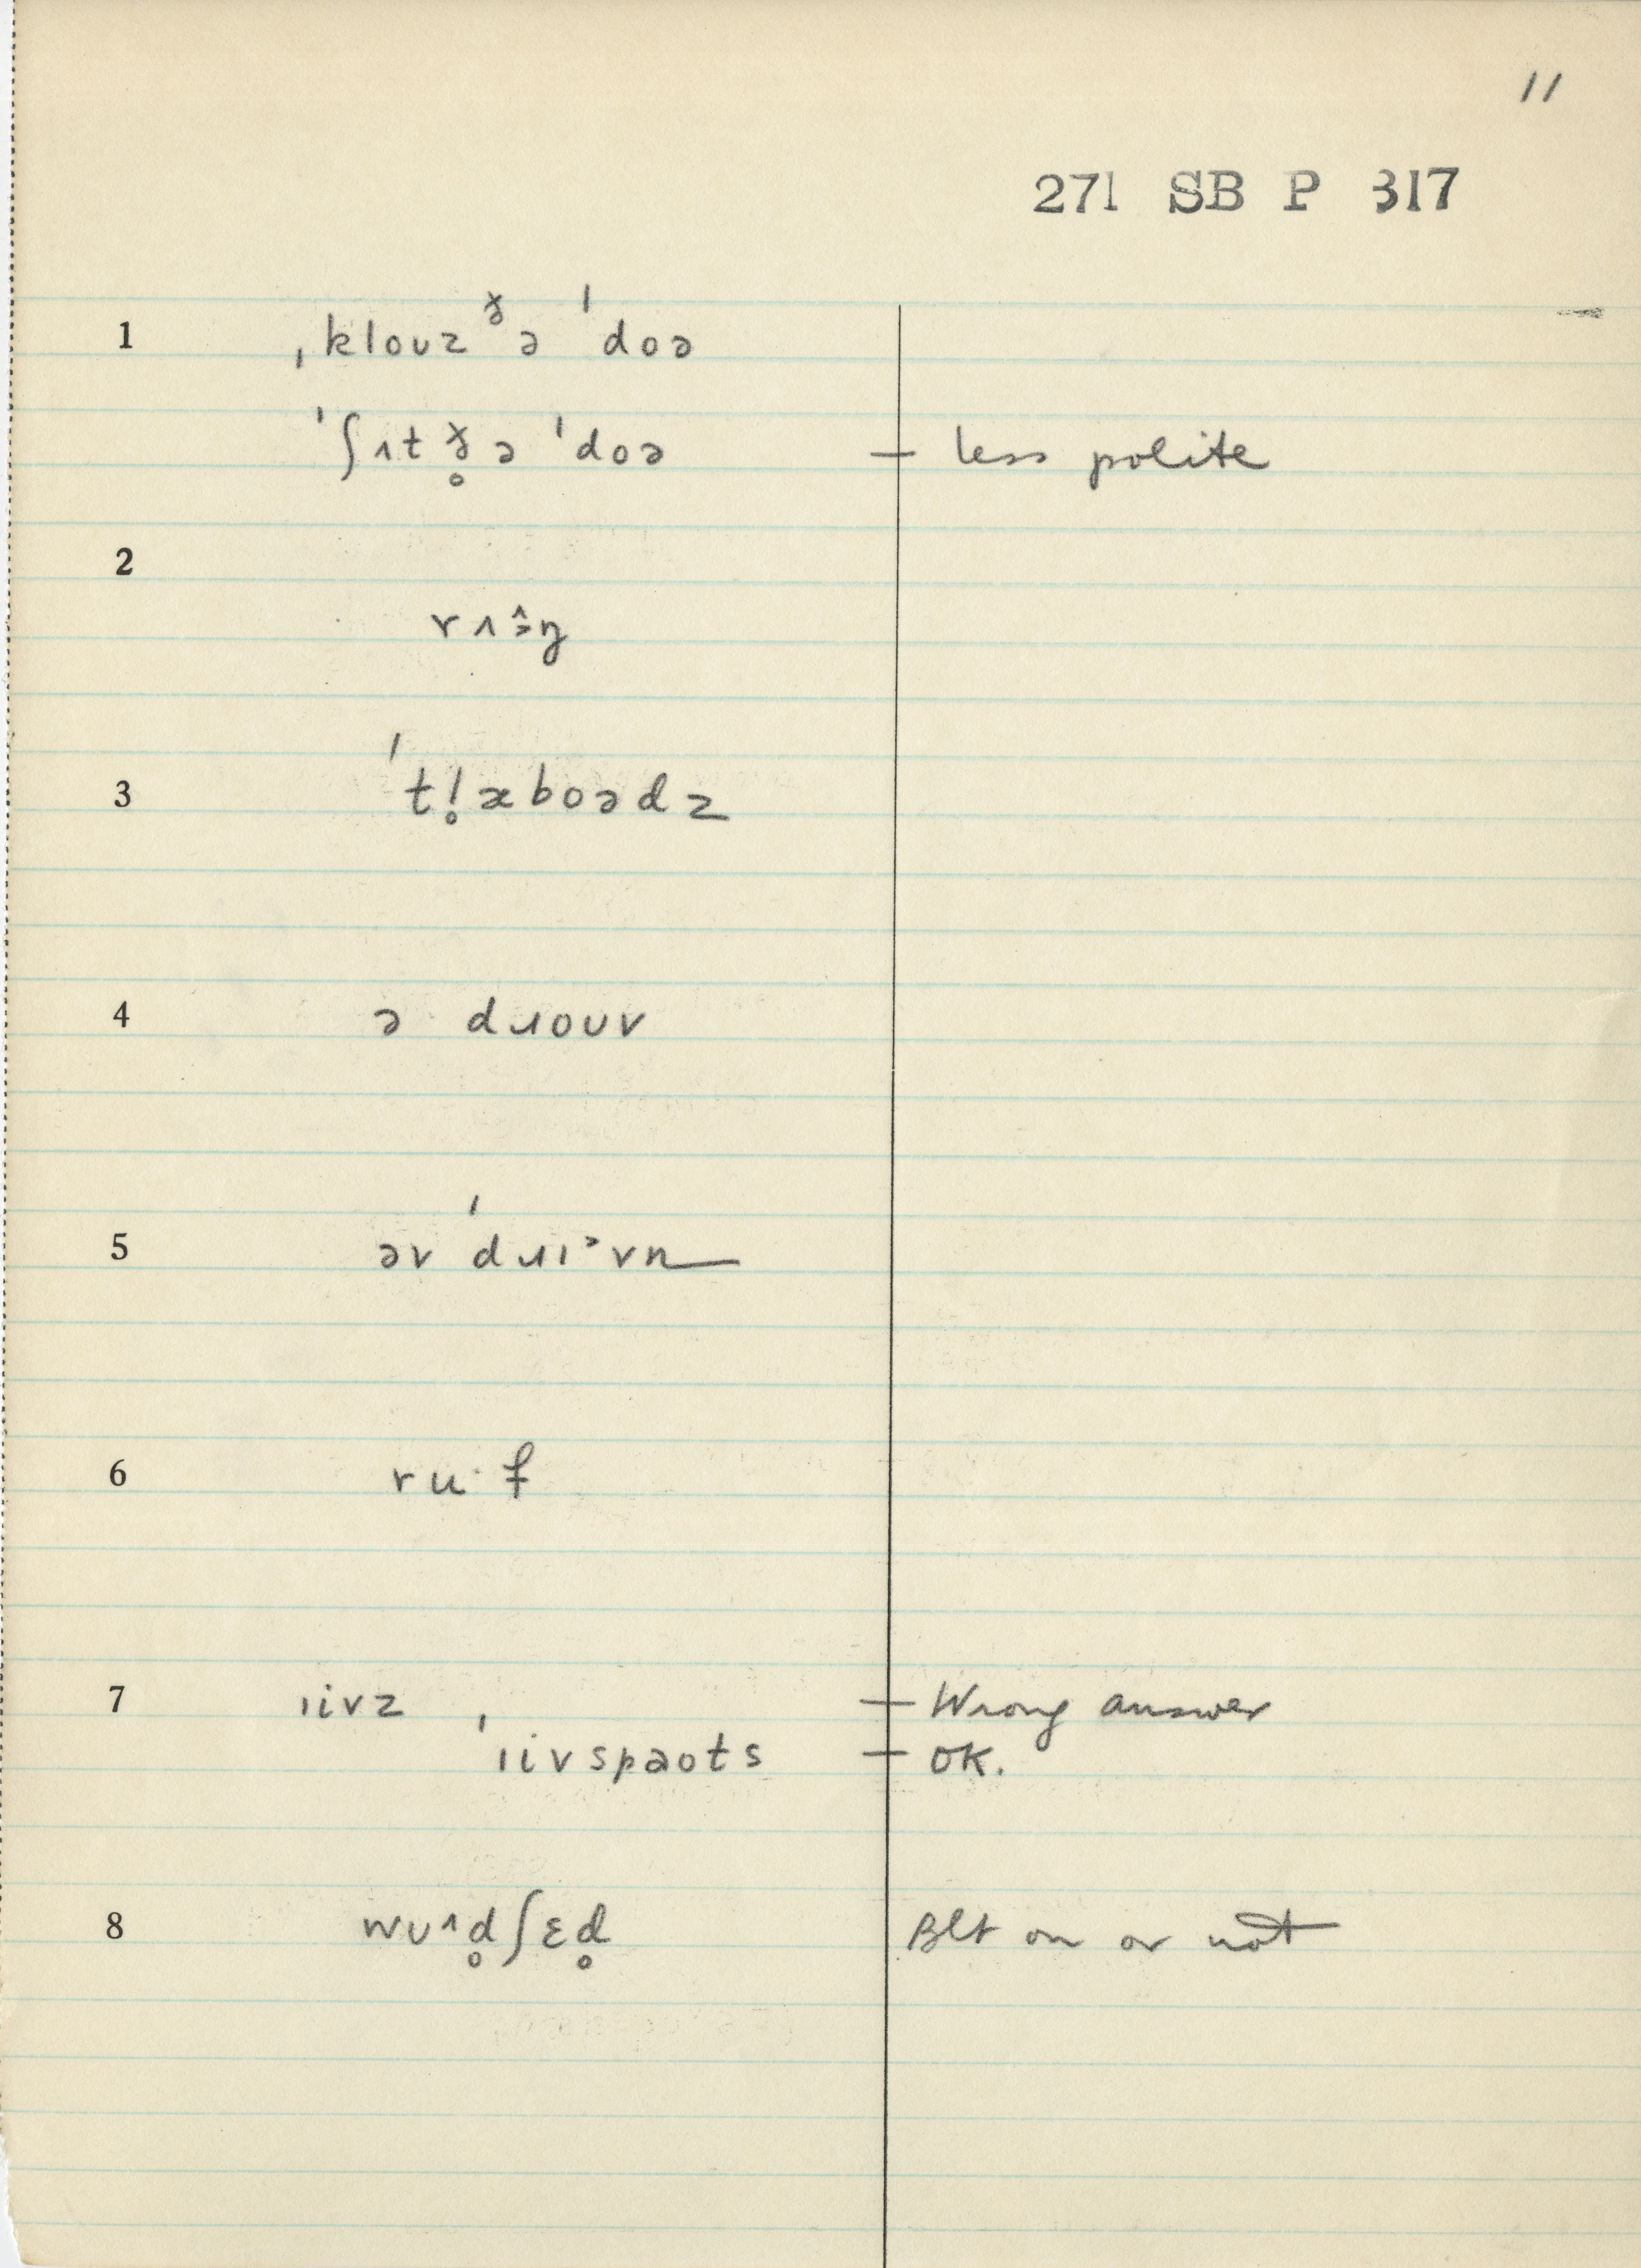 11
271 SB P 317
1 ˌklouz ᵹ̌ə ˈdoə
ˈʃɪt ð̥ə ˈdoə — less polite
2
3 ˈtl̥æboədz
4 ə dɹouv
5 əv ˈdɹɪᵊvn
6
7 ɪivz — Wrong answer
ˈɪivspaots — OK.
8 wuˆd̥ʃɛd̥ Blt on or not